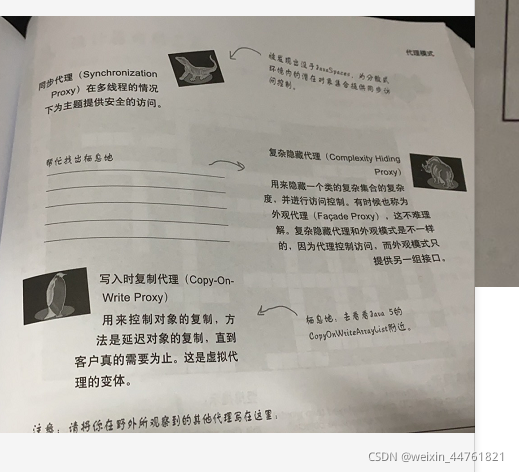 代理模式
同步代理（Synchronization
Proxy）在多线程的情况
下为主题提供安全的访问。
被发现出没于JavaSpaces，为分散式
环境内的潜在对象集合提供同步访
问控制。
帮忙找出栖息地
复杂隐藏代理（Complexity Hiding
Proxy）
用来隐藏一个类的复杂集合的复杂
度，并进行访问控制。有时候也称为
外观代理（Façade Proxy），这不难理
解。复杂隐藏代理和外观模式是不一样
的，因为代理控制访问，而外观模式只
提供另一组接口。
写入时复制代理（Copy-On-
Write Proxy）
用来控制对象的复制，方
法是延迟对象的复制，直到
客户真的需要为止。这是虚拟代
理的变体。
栖息地，去看看Java 5的
CopyOnWriteArrayList附近。
注意：请将你在野外所观察到的其他代理写在这里：
CSDN @weixin_44761821